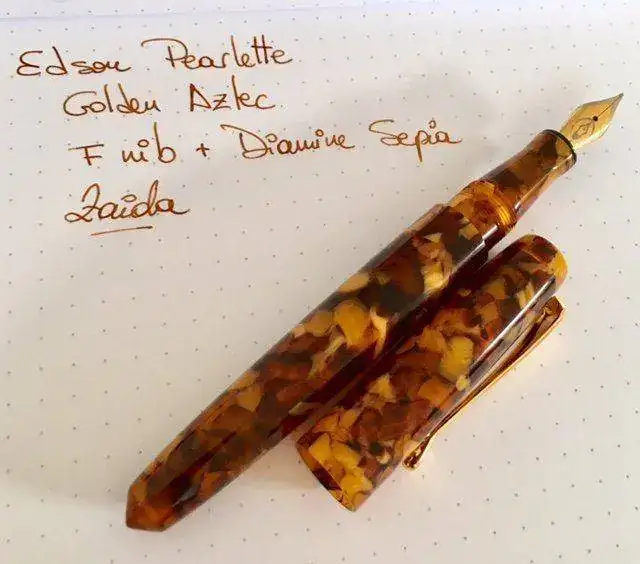 Edson Pearlette
Golden Aztec
F nib + Diamine Sepia
Zaida